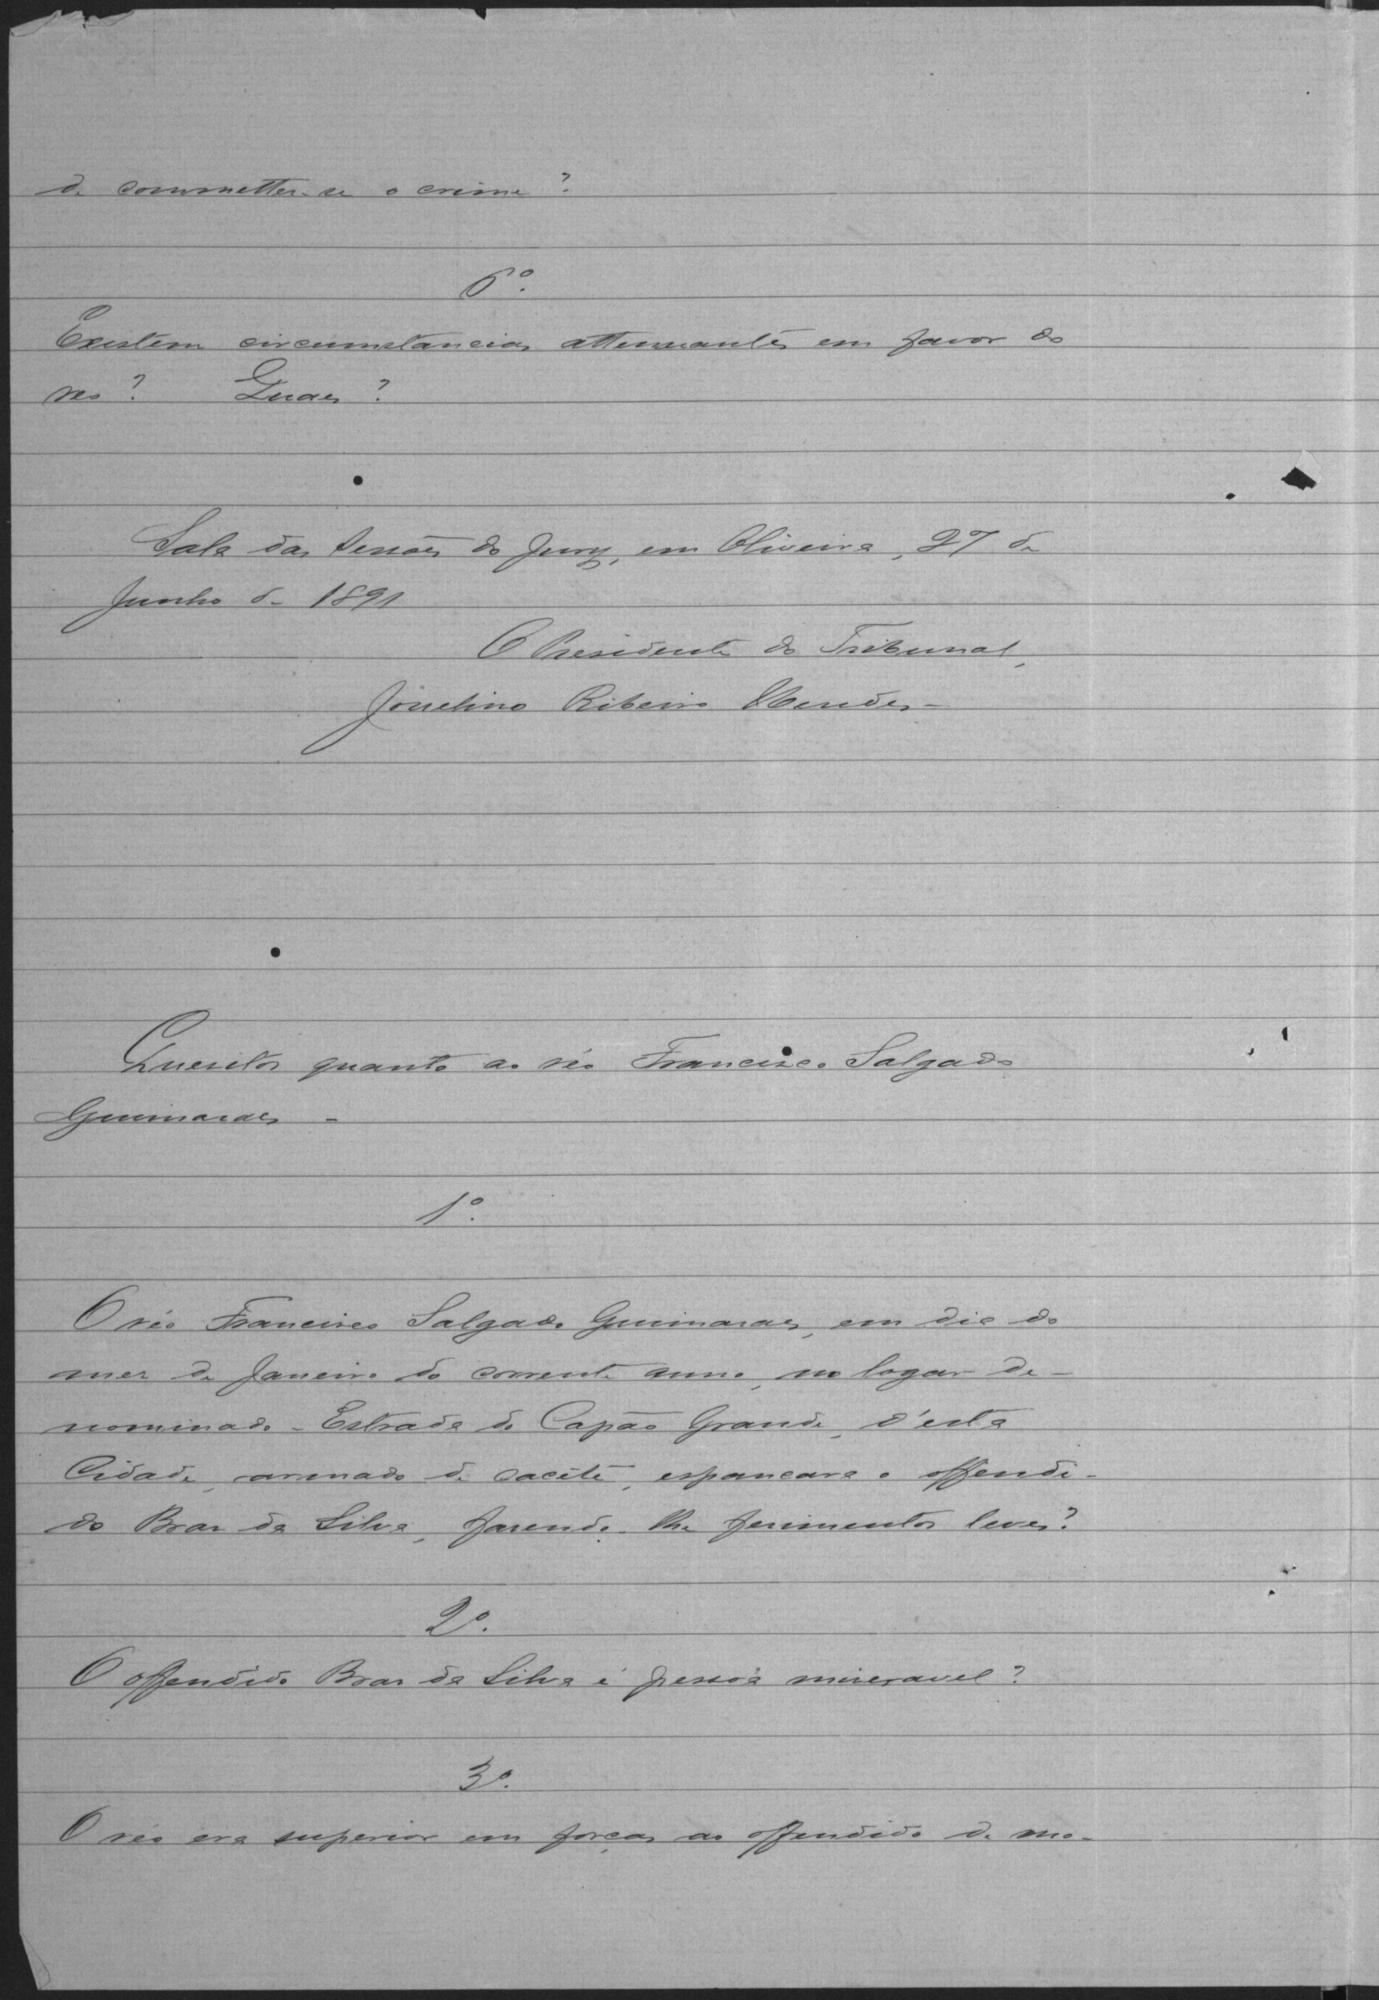 de commetter-se o crime?
6º.
Existem circumstancias attenuantes em favor do
réo? Quaes?
Sala das sessões do Jury, em Oliveira, 27 de
Junho de 1891
O Presidente do Tribunal,
Jouelino Ribeiro Mendes-
Quesitos quanto ao réo Francisco Salgado
Guimarães -
1º.
O réo Francisco Salgado Guimarães, em dia do
mez de Janeiro do corrente anno, no logar de-
nominado - Estrada do Capão Grande, d'esta
Cidade, armado de cacête, espancara o offendi-
do Braz da Silva, fazendo-lhe ferimentos leves?
2º.
O offendido Braz da Silva é pessôa miseravel?
3º.
O réo era superior em forças ao offendido de mo-